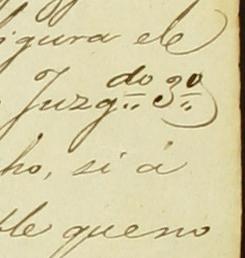 igura ele
Juzg.do 3.o
ho, si á
ble que no